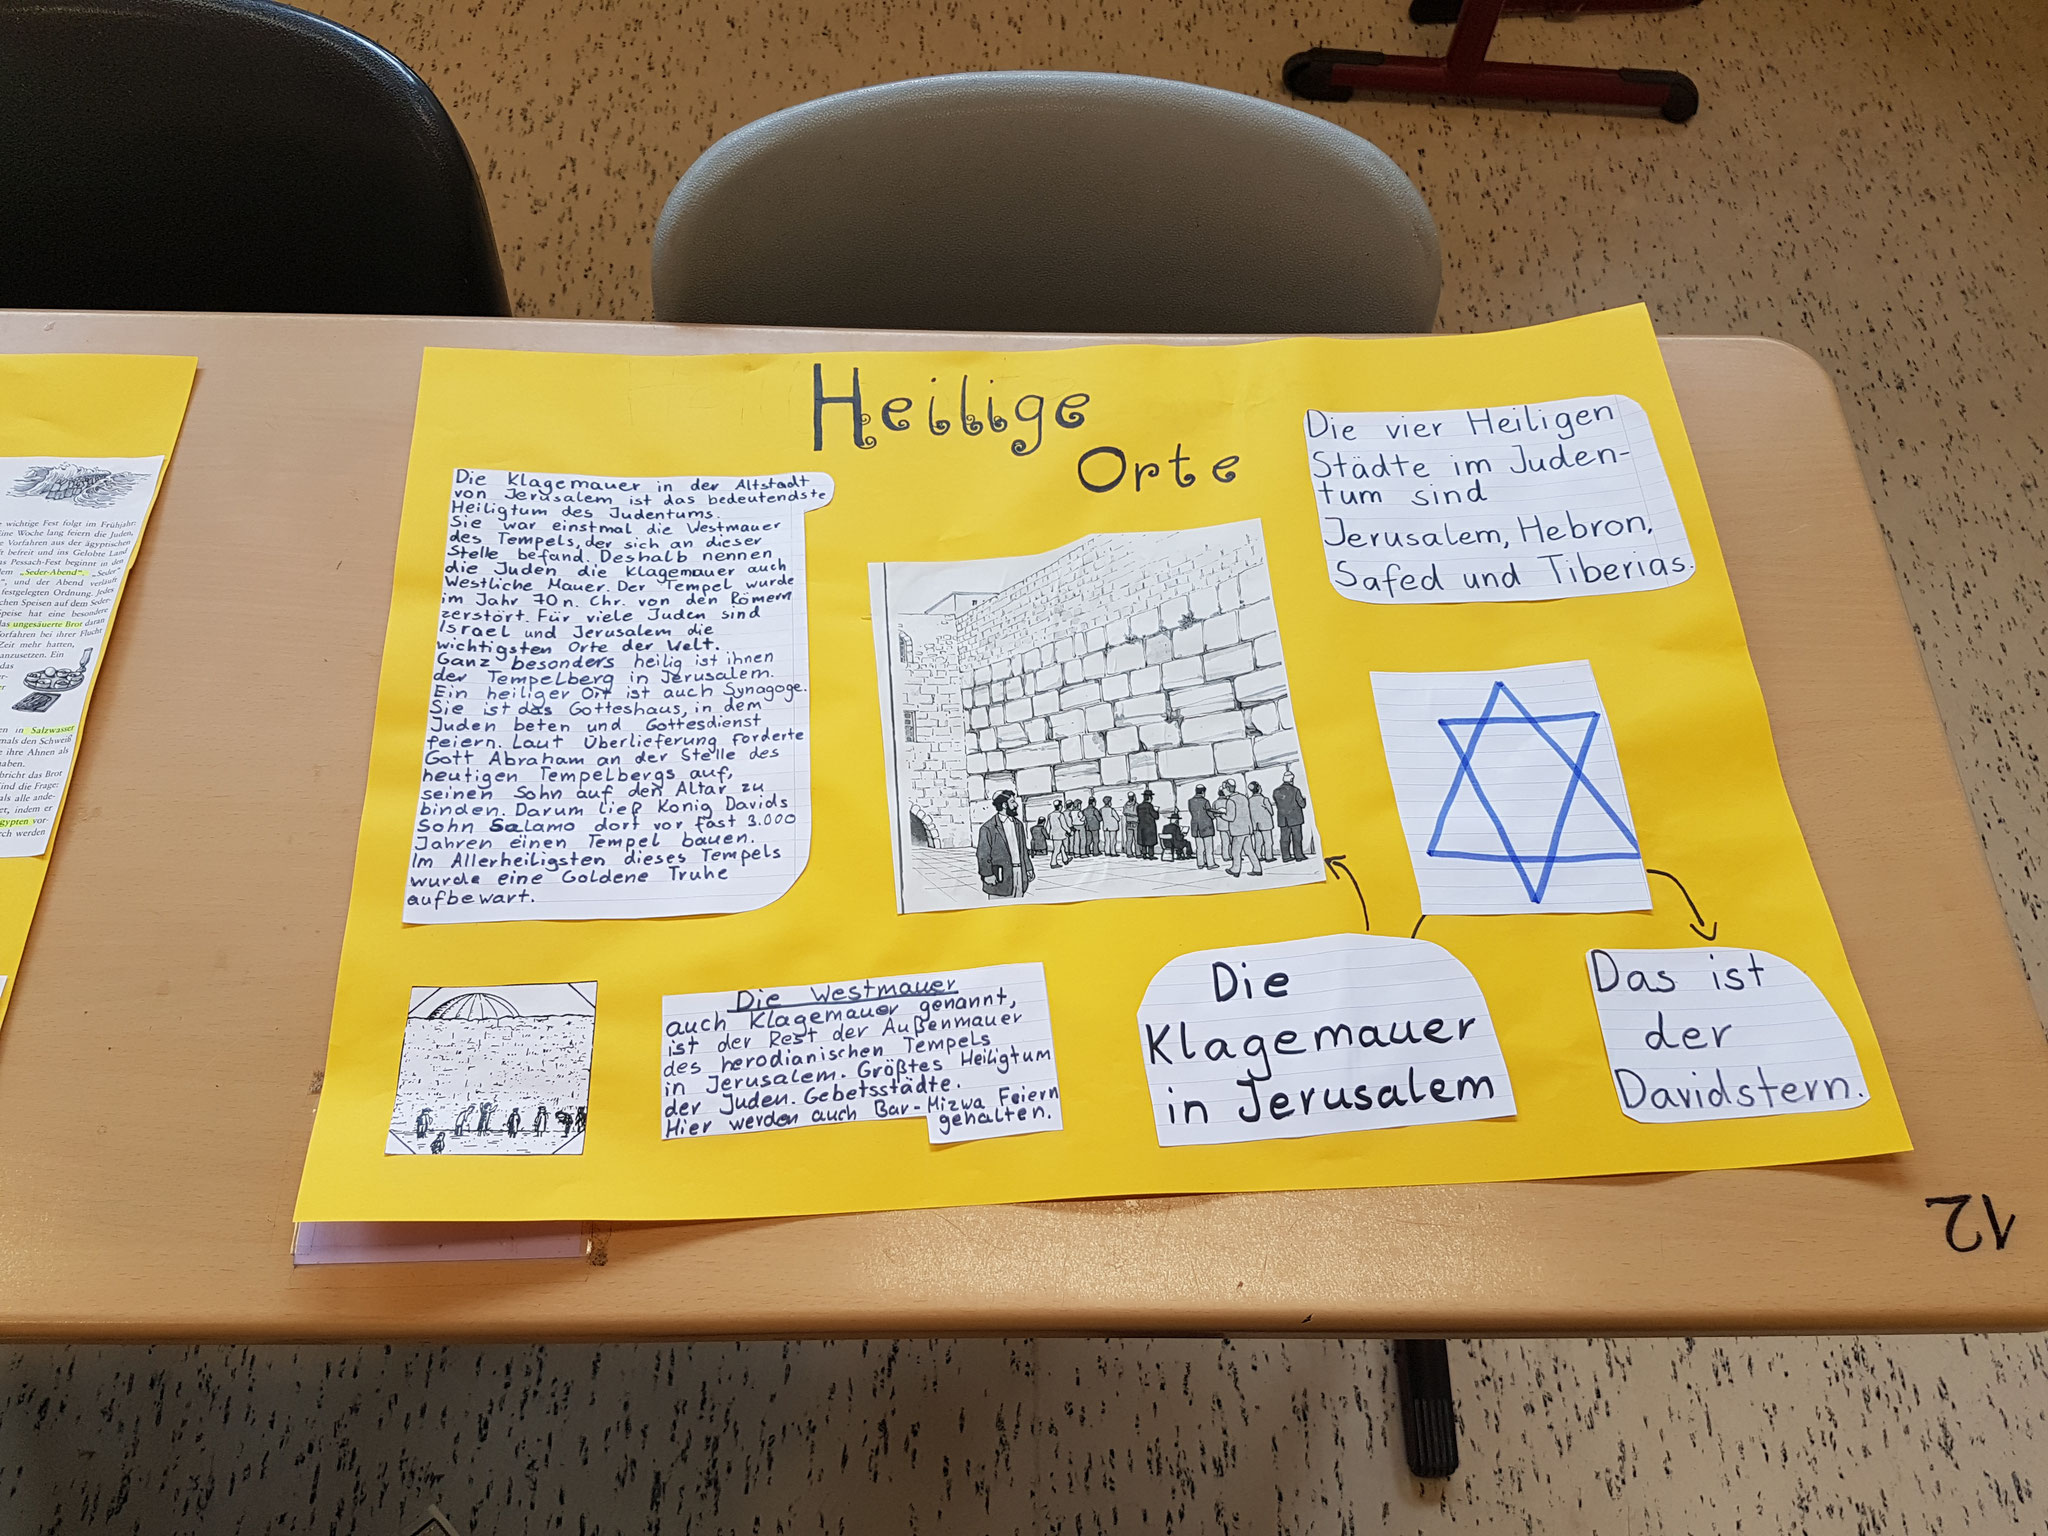 Heilige
Orte
Die Klagemauer in der Altstadt
von Jerusalem ist das bedeutendste
Heiligtum des Judentums.
Sie war einstmal die Westmauer
des Tempels, der sich an dieser
Stelle befand. Deshalb nennen
die Juden die Klagemauer auch
Westliche Mauer. Der Tempel wurde
im Jahr 70 n. Chr. von den Römern
zerstört. Für viele Juden sind
Israel und Jerusalem die
wichtigsten Orte der Welt.
Ganz besonders heilig ist ihnen
der Tempelberg in Jerusalem.
Ein heiliger Ort ist auch Synagoge.
Sie ist das Gotteshaus, in dem
Juden beten und Gottesdienst
feiern. Laut Überlieferung forderte
Gott Abraham an der Stelle des
heutigen Tempelbergs auf,
seinen Sohn auf den Altar zu
binden. Darum ließ König Davids
Sohn Salamo dort vor fast 3.000
Jahren einen Tempel bauen.
Im Allerheiligsten dieses Tempels
wurde eine Goldene Truhe
aufbewart.
Die vier Heiligen
Städte im Juden-
tum sind
Jerusalem, Hebron,
Safed und Tiberias.
Die Westmauer
auch Klagemauer genannt,
ist der Rest der Außenmauer
des herodianischen Tempels
in Jerusalem. Größtes Heiligtum
der Juden. Gebetsstädte.
Hier werden auch Bar-Mizwa Feiern
gehalten.
Die
Klagemauer
in Jerusalem
Das ist
der
Davidstern.
12
wichtige Fest folgt im Frühjahr:
Eine Woche lang feiern die Juden,
Vorfahren aus der ägyptischen
befreit und ins Gelobte Land
Pessach-Fest beginnt in den
„Seder-Abend“. „Seder“
und der Abend verläuft
festgelegten Ordnung. Jedes
Speisen auf dem Seder-
Speise hat eine besondere
das ungesäuerte Brot daran
Vorfahren bei ihrer Flucht
Zeit mehr hatten,
anzusetzen. Ein
das
in Salzwasser
mals den Schweiß
ihre Ahnen als
haben.
bricht das Brot
Kind die Frage:
als alle ande-
indem er
Ägypten vor-
werden